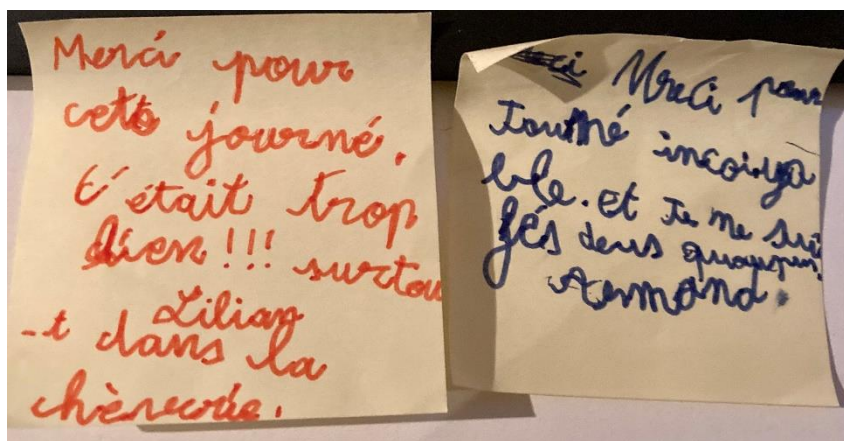 Merci pour
cete journé.
C'était trop
bien!!! surtou
Lilian
-t dans la
chèvrerie.
Mreci pour
Tourné incoiya
ble. et Je me sui
fés deus quoupin.
Armand.